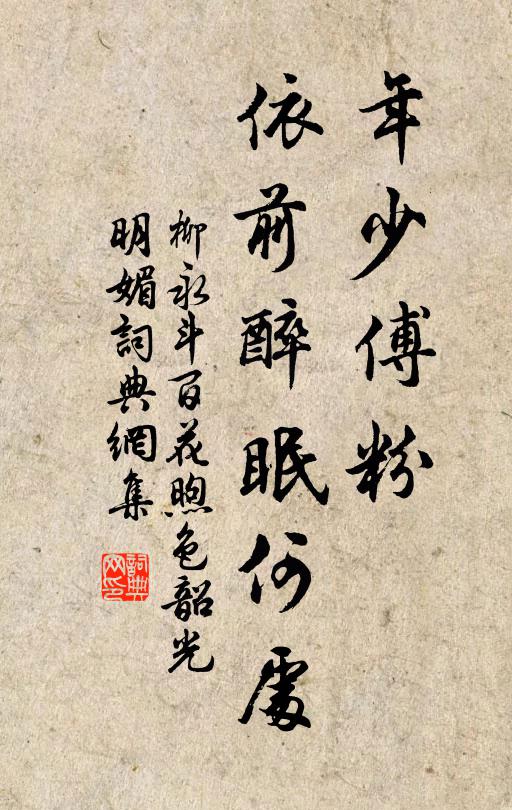 年少傅粉
依前醉眠何處
柳永斗百花煦色韶光
明媚詞典網集
詞典
网印